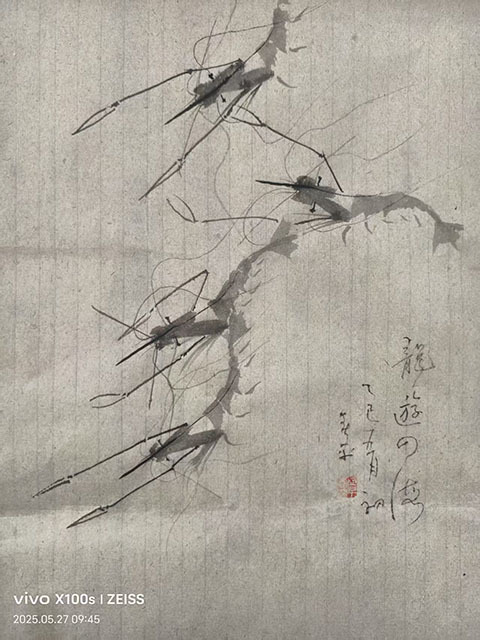 龍遊四海
乙巳五月初
vivo X100s | ZEISS
2025.05.27 09:45